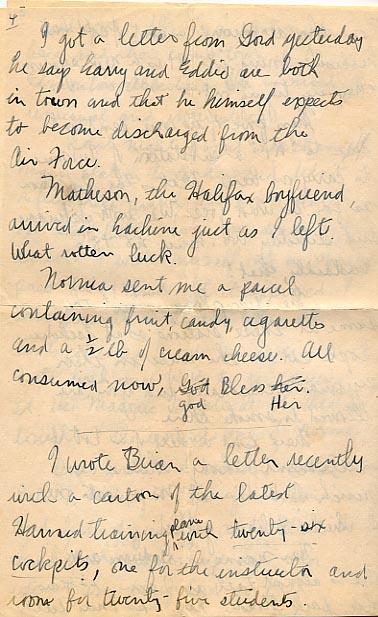 4
I got a letter from Gord yesterday
he says Harry and Eddie are both
in town and that he himself expects
to become discharged from the
Air Force.
Matheson, the Halifax boyfriend,
arrived in Lachine just as I left.
What rotten luck.
Norma sent me a parcel
containing fruit, candy, cigarettes
and a ½ lb of cream cheese. All
consumed now, God Bless her.
god Her
I wrote Brian a letter recently
with a cartoon of the latest
Harvard training plane with twenty-six
cockpits, one for the instructor and
room for twenty-five students.